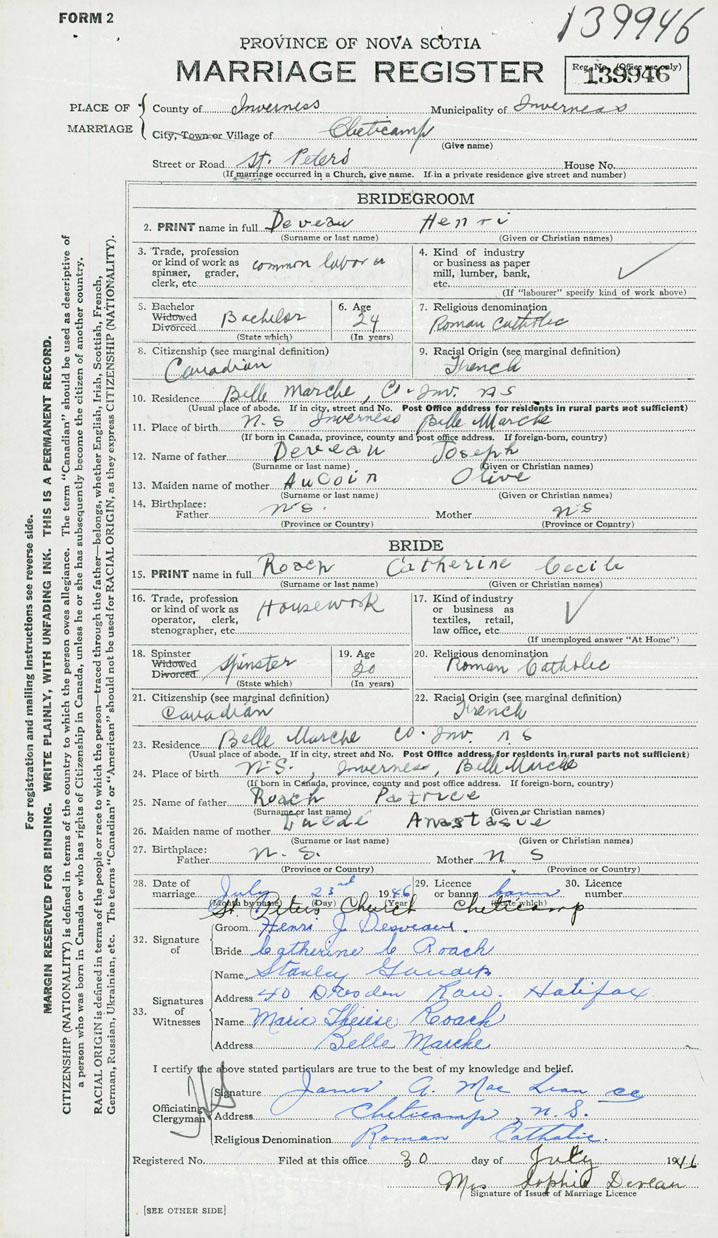 FORM 2
139946
PROVINCE OF NOVA SCOTIA
MARRIAGE REGISTER
Reg. No. (Office use only)
139946
PLACE OF MARRIAGE
County of Inverness Municipality of Inverness
City, Town or Village of Cheticamp
(Give name)
Street or Road St. Peters House No.
(If marriage occurred in a Church, give name. If in a private residence give street and number)
BRIDEGROOM
2. PRINT name in full Deveau Henri
(Surname or last name) (Given or Christian names)
3. Trade, profession or kind of work as spinner, grader, clerk, etc. common labor
4. Kind of industry or business as paper mill, lumber, bank, etc. ✓
(If "labourer" specify kind of work above)
5. Bachelor Widowed Divorced Bachelor
(State which)
6. Age 24
(In years)
7. Religious denomination
Roman Catholic
8. Citizenship (see marginal definition)
Canadian
9. Racial Origin (see marginal definition)
French
10. Residence Belle Marche, Co. Inv. N S
(Usual place of abode. If in city, street and No. Post Office address for residents in rural parts not sufficient)
11. Place of birth N.S Inverness Belle Marche
(If born in Canada, province, county and post office address. If foreign-born, country)
12. Name of father Deveau Joseph
(Surname or last name) (Given or Christian names)
13. Maiden name of mother AuCoin Olive
(Surname or last name) (Given or Christian names)
14. Birthplace: Father N.S. Mother N S
(Province or Country) (Province or Country)
BRIDE
15. PRINT name in full Roach Catherine Cecile
(Surname or last name) (Given or Christian names)
16. Trade, profession or kind of work as operator, clerk, stenographer, etc. Housework
17. Kind of industry or business as textiles, retail, law office, etc. ✓
(If unemployed answer "At Home")
18. Spinster Widowed Divorced Spinster
(State which)
19. Age 20
(In years)
20. Religious denomination
Roman Catholic
21. Citizenship (see marginal definition)
Canadian
22. Racial Origin (see marginal definition)
French
23. Residence Belle Marche Co. Inv. N S
(Usual place of abode. If in city, street and No. Post Office address for residents in rural parts not sufficient)
24. Place of birth N.S., Inverness, Belle Marche
(If born in Canada, province, county and post office address. If foreign-born, country)
25. Name of father Roach Patrice
(Surname or last name) (Given or Christian names)
26. Maiden name of mother Anastasie
(Surname or last name) (Given or Christian names)
27. Birthplace: Father N.S. Mother N S
(Province or Country) (Province or Country)
28. Date of marriage July 23rd 1946
(Month by name) (Day) (Year)
29. Licence or banns banns
(State which)
30. Licence number
St. Peters Church Cheticamp
32. Signature of
Groom Henri J. Desveaux.
Bride Catherine C Roach
33. Signatures of Witnesses
Name Stanley
Address 40 Dresden Row. Halifax
Name Marie Thérèse Roach
Address Belle Marche
I certify the above stated particulars are true to the best of my knowledge and belief.
Officiating Clergyman
Signature James A. Mac Lean cc
Address Cheticamp, N.S.
Religious Denomination Roman Catholic.
Registered No. Filed at this office 30 day of July 1946
Mrs Sophie Deveau
Signature of Issuer of Marriage Licence
[SEE OTHER SIDE]
For registration and mailing instructions see reverse side.
MARGIN RESERVED FOR BINDING. WRITE PLAINLY, WITH UNFADING INK. THIS IS A PERMANENT RECORD.
CITIZENSHIP (NATIONALITY) is defined in terms of the country to which the person owes allegiance. The term "Canadian" should be used as descriptive of
a person who was born in Canada or who has rights of Citizenship in Canada, unless he or she has subsequently become the citizen of another country.
RACIAL ORIGIN is defined in terms of the people or race to which the person—traced through the father—belongs, whether English, Irish, Scottish, French,
German, Russian, Ukrainian, etc. The terms "Canadian" or "American" should not be used for RACIAL ORIGIN, as they express CITIZENSHIP (NATIONALITY).